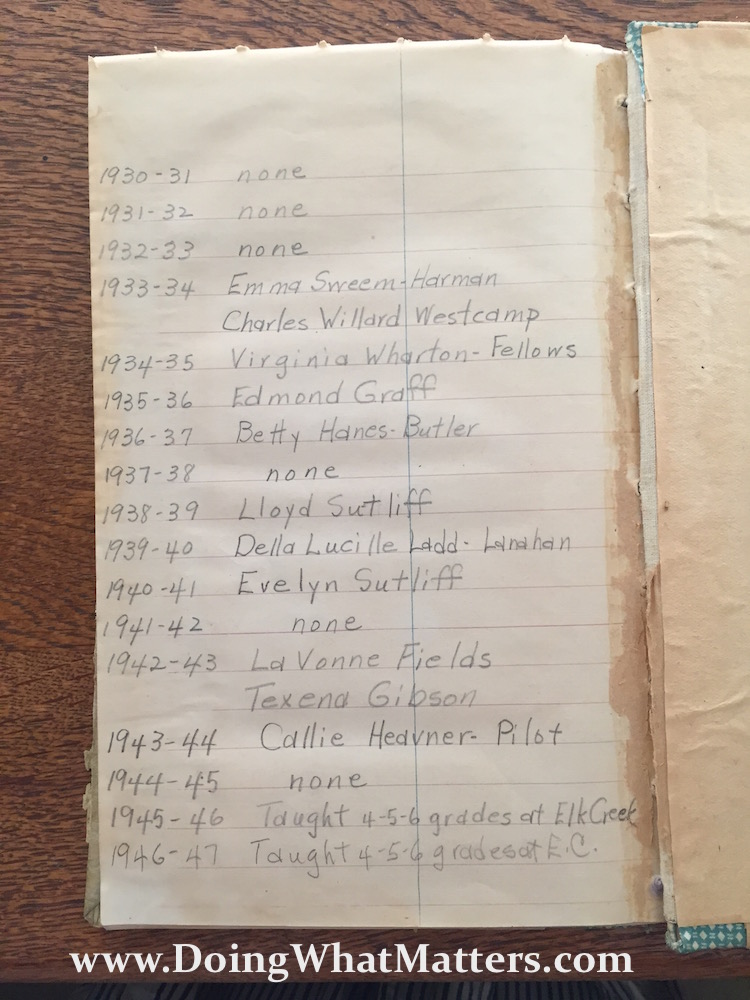 1930-31 none
1931-32 none
1932-33 none
1933-34 Emma Sweem-Harman
Charles Willard Westcamp
1934-35 Virginia Wharton-Fellows
1935-36 Edmond Graff
1936-37 Betty Hanes-Butler
1937-38 none
1938-39 Lloyd Sutliff
1939-40 Della Lucille Ladd-Lanahan
1940-41 Evelyn Sutliff
1941-42 none
1942-43 La Vonne Fields
Texena Gibson
1943-44 Callie Heavner-Pilot
1944-45 none
1945-46 Taught 4-5-6 grades at Elk Creek
1946-47 Taught 4-5-6 grades at E.C.
www.DoingWhatMatters.com